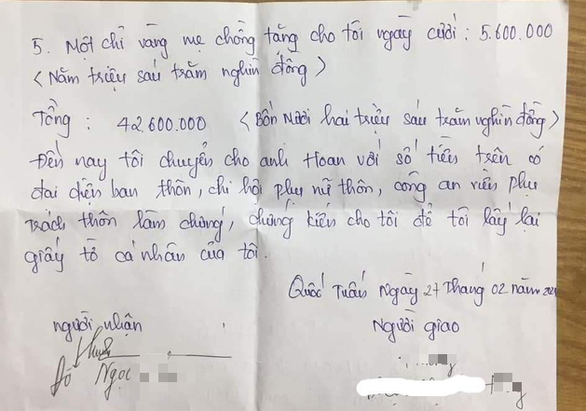 5. Một chỉ vàng mẹ chồng tặng cho tôi ngày cưới: 5.600.000
<Năm triệu sáu trăm nghìn đồng>
Tổng: 42.600.000 <Bốn mươi hai triệu sáu trăm nghìn đồng>
Đến nay tôi chuyển cho anh Hoan với số tiền trên có
đại diện ban thôn, chi hội phụ nữ thôn, công an viên phụ
trách thôn làm chứng, chứng kiến cho tôi để tôi lấy lại
giấy tờ cá nhân của tôi.
Quốc Tuấn Ngày 27 Tháng 02 năm
người nhận
Người giao
Đỗ
Ngọc